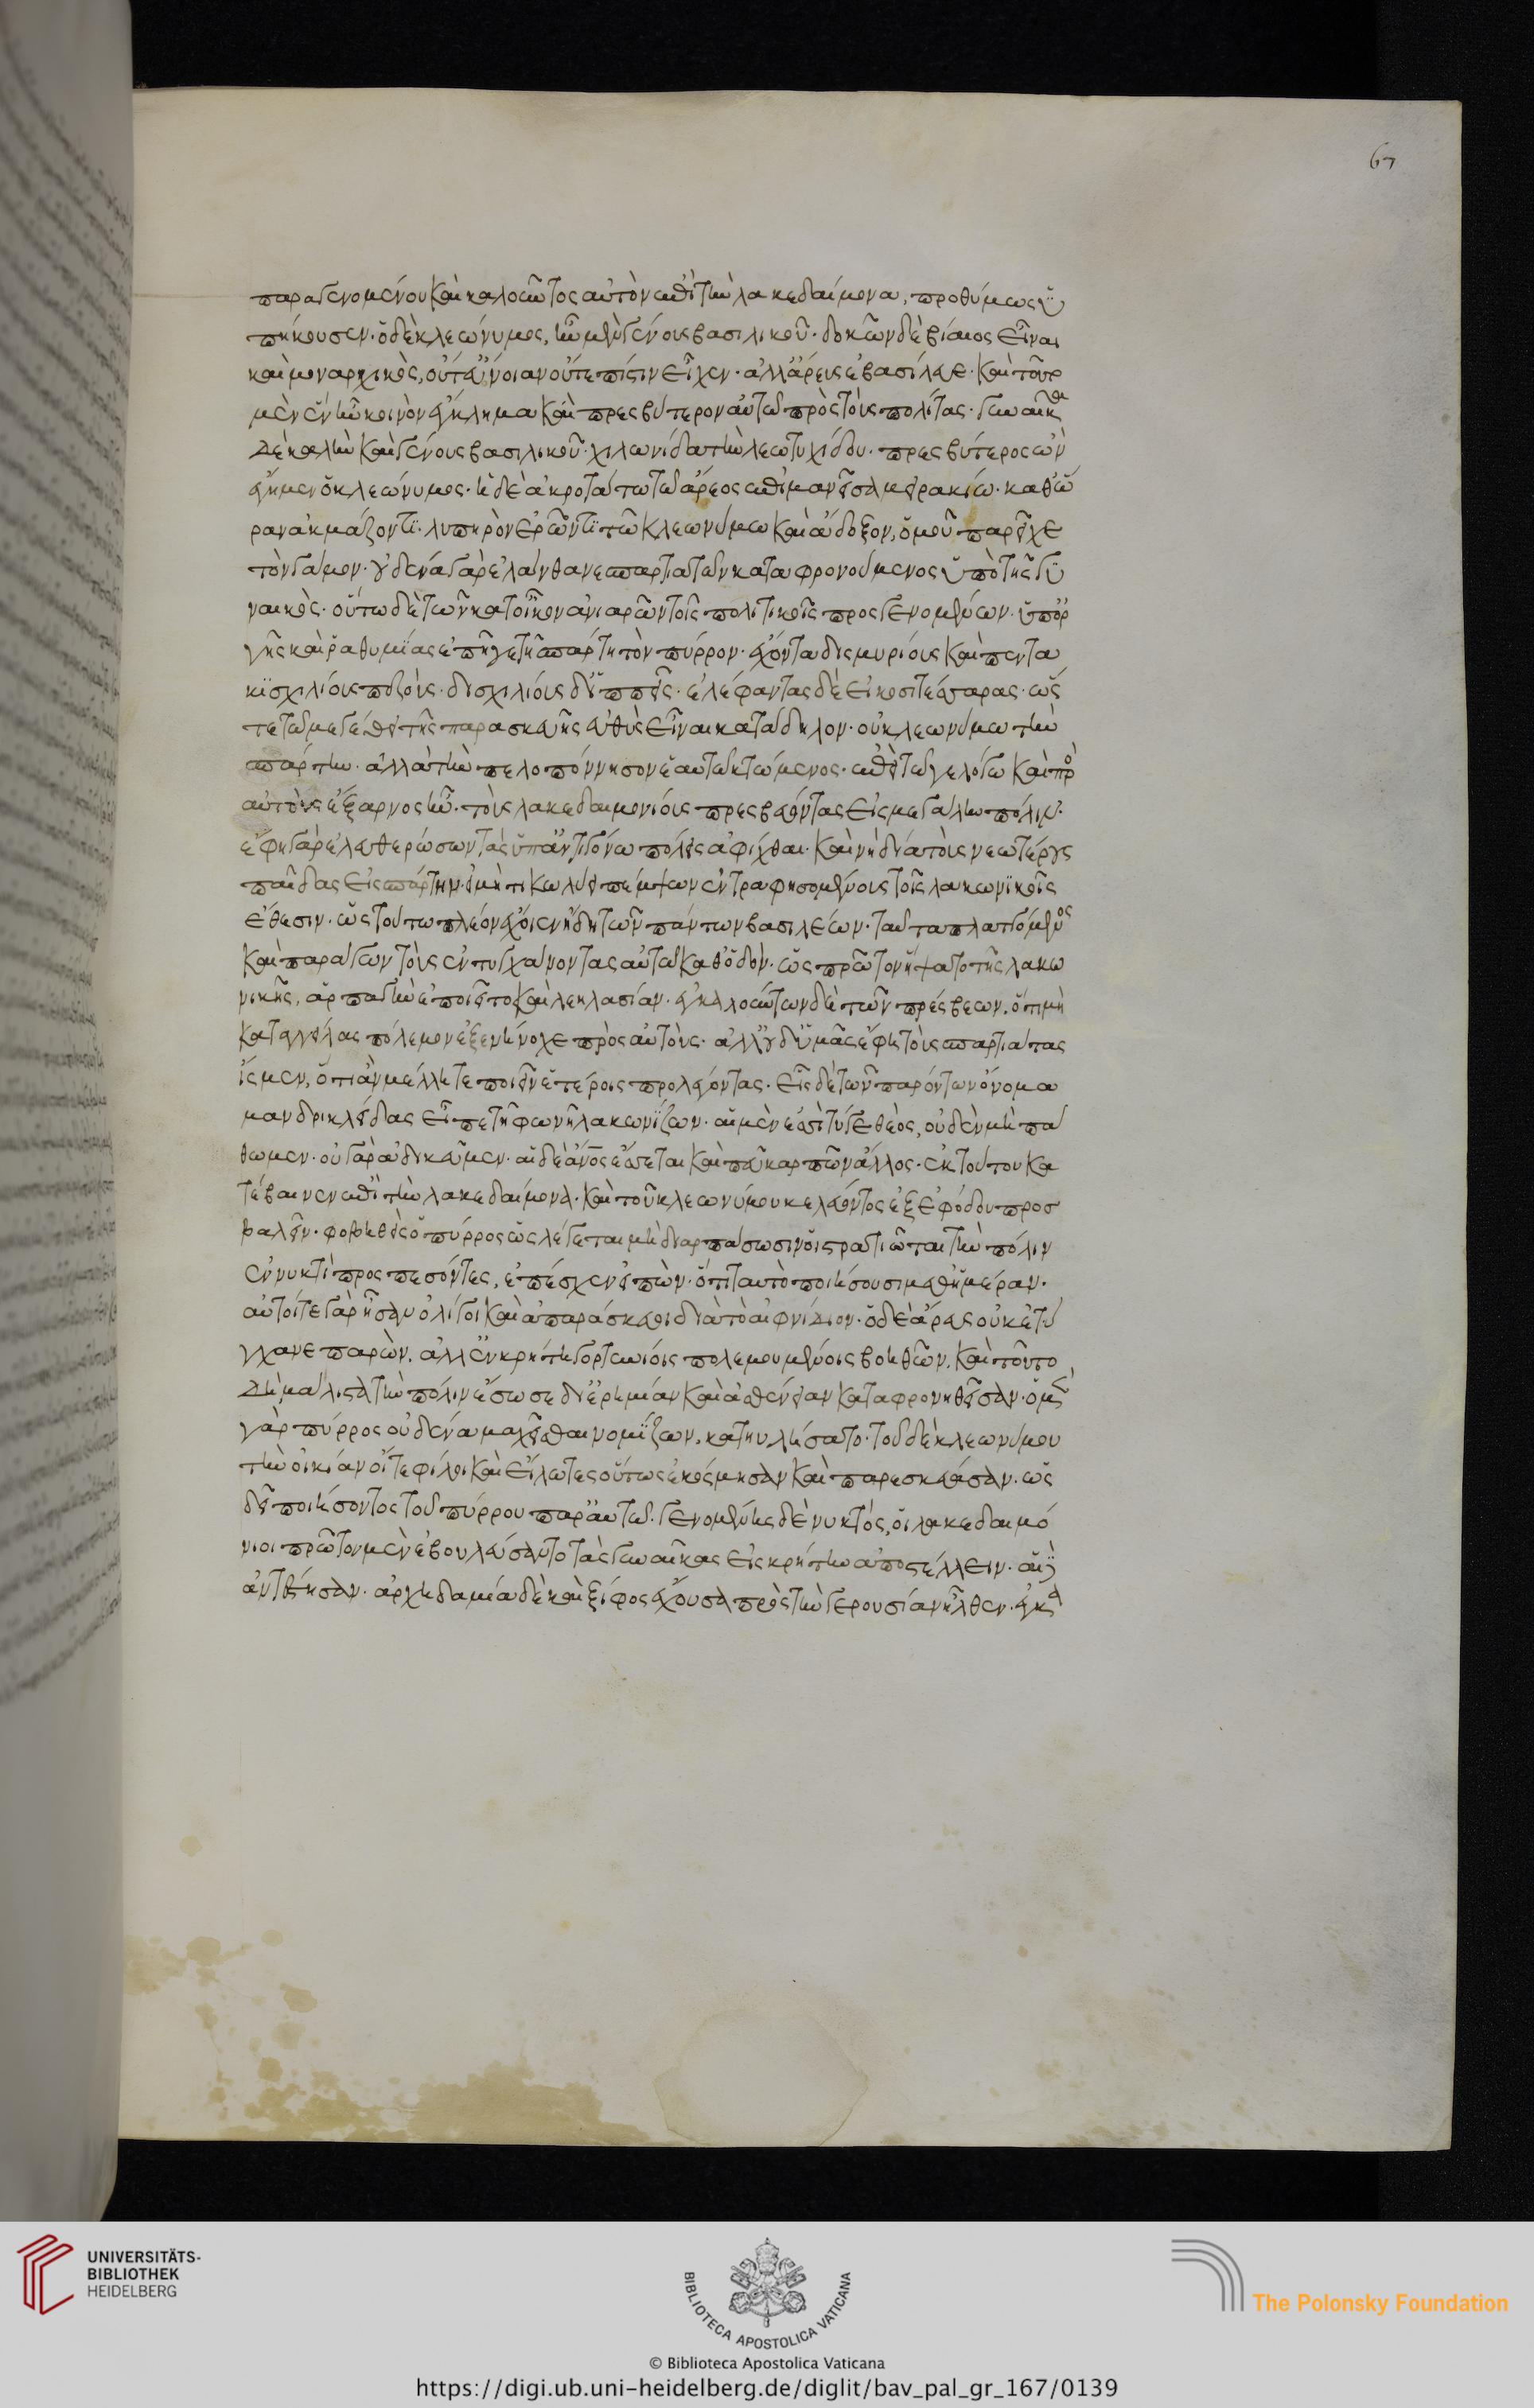 67
παραγενομένου καὶ καλοῦντος αὐτὸν ἐπὶ τὴν λακεδαίμονα, προθύμως ὑ
πήκουσεν· ὁ δὲ κλεώνυμος, ἦν μὲν γένους βασιλικοῦ· δοκῶν δὲ βίαιος εἶναι
καὶ μοναρχικὸς, οὔτ' εὔνοιαν οὔτε πίστιν εἶχεν· ἀλλ' ἄρευς ἐβασίλευε· καὶ τοῦτο
μὲν ἓν ἦν κοινὸν ἔγκλημα καὶ πρεσβύτερον αὐτῶ πρὸς τοὺς πολίτας· γυναῖκα
δὲ καλὴν καὶ γένους βασιλικοῦ· χιλωνίδα τὴν λεωτυχίδου· πρεσβύτερος ὢν
ἔγημεν ὁ κλεώνυμος· ἡ δὲ ἀκροτάτω τῶ ἄρεος ἐπιμανεῖσα μειρακίω· καθ' ὥ
ραν ἀκμάζοντι· λυπηρὸν ἐρῶντι τῶ κλεωνύμω καὶ ἄδοξον, ὁμοῦ παρεῖχε
τὸν γάμον· οὐδένα γὰρ ἐλάνθανε σπαρτιατῶν καταφρονούμενος ὑπὸ τῆς γυ
ναικὸς· οὕτω δὲ τῶν κατ' οἶκον ἀνιαρῶν τοῖς πολιτικοῖς προσγενομένων· ὑπ' ὀρ
γῆς καὶ ῥαθυμίας ἐπῆγε τῆ σπάρτη τὸν πύρρον· ἔχοντα δισμυρίους καὶ πεντα
κισχιλίους πεζοὺς· δισχιλίους δ' ἱππεῖς· ἐλέφαντας δὲ εἰκοσιτέσσαρας· ὥς
τε τῶ μεγέθει τῆς παρασκευῆς εὐθὺς εἶναι κατάδηλον· οὐ κλεωνύμω τὴν
σπάρτην· ἀλλὰ τὴν πελοπόννησον ἑαυτῶ κτώμενος· ἐπεὶ τῶ γε λόγω καὶ πρὸς
αὐτοὺς ἔξαρνος ἦν· τοὺς λακεδαιμονίους πρεσβεύοντας εἰς μεγάλην πόλιν·
ἔφη γὰρ ἐλευθερώσων τὰς ὑπ' ἀντιγόνω πόλεις ἀφῖχθαι· καὶ νὴ δία τοὺς νεωτέρους
παῖδας εἰς σπάρτην· εἰ μή τι κωλύει πέμψων ἐντραφησομένους τοῖς λακωνικοῖς
ἔθεσιν· ὡς τούτω πλέον ἔχοιεν ἤδη τῶν πάντων βασιλέων· ταῦτα πλαττόμενος
καὶ παράγων τοὺς ἐντυγχάνοντας αὐτῶ καθ' ὁδόν· ὡς πρῶτον ἥψατο τῆς λακω
νικῆς, ἁρπαγὴν ἐποιεῖτο καὶ λεηλασίαν· ἐγκαλούντων δὲ τῶν πρέσβεων, ὅτι μὴ
καταγγείλας πόλεμον ἐξενήνοχε πρὸς αὐτοὺς· ἀλλ' οὐδ' ὑμᾶς ἔφη τοὺς σπαρτιάτας
ἴσμεν, ὅτι ἂν μέλλητε ποιεῖν ἑτέροις προλέγοντας· εἷς δὲ τῶν παρόντων ὄνομα
μανδρικλείδας εἶπε τῆ φωνῆ λακωνίζων· αἰ μὲν ἐσσὶ τύγε θεὸς, οὐδὲν μὴ πά
θωμεν· οὐ γὰρ ἀδικεῦμεν· αἰ δὲ ἄνος ἔσεται καὶ τεῦ κάρρων ἄλλος· ἐκ τούτου κα
τέβαινεν ἐπὶ τὴν λακεδαίμονα· καὶ τοῦ κλεωνύμου κελεύοντος ἐξ ἐφόδου προσ
βαλεῖν· φοβηθεὶς ὁ πύρρος ὡς λέγεται μὴ διαρπάσωσιν οἱ στρατιῶται τὴν πόλιν
ἐν νυκτὶ προσπεσόντες, ἐπέσχεν εἰπὼν· ὅτι ταυτὸ ποιήσουσι μεθ' ἡμέραν·
αὐτοί τε γὰρ ἦσαν ὀλίγοι καὶ ἀπαράσκευοι διὰ τὸ αἰφνίδιον· ὁ δὲ ἄρευς οὐκ ἐτύ
γχανε παρὼν, ἀλλ' ἐν κρήτη γορτυνίοις πολεμουμένοις βοηθῶν, καὶ τοῦτο
δὴ μάλιστα τὴν πόλιν ἔσωσε δι' ἐρημίαν καὶ ἀσθένειαν καταφρονηθεῖσαν· ὁ μὲν
γὰρ πύρρος οὐδένα μαχεῖσθαι νομίζων, κατηυλήσατο· τοῦ δὲ κλεωνύμου
τὴν οἰκίαν οἵ τε φίλοι καὶ εἵλωτες οὕτως ἐκόσμησαν καὶ παρεσκεύασαν· ὡς
δειπνήσοντος τοῦ πύρρου παρ' αὐτῶ· γενομένης δὲ νυκτός, οἱ λακεδαιμό
νιοι πρῶτον μὲν ἐβουλεύσαντο τὰς γυναῖκας εἰς κρήτην ἀποστέλλειν· αἱ δ'
ἀντέστησαν· ἀρχιδαμία δὲ καὶ ξίφος ἔχουσα πρὸς τὴν γερουσίαν ἦλθεν· ἐγκα
UNIVERSITÄTS-
BIBLIOTHEK
HEIDELBERG
BIBLIOTECA APOSTOLICA VATICANA
The Polonsky Foundation
© Biblioteca Apostolica Vaticana
https://digi.ub.uni-heidelberg.de/diglit/bav_pal_gr_167/0139